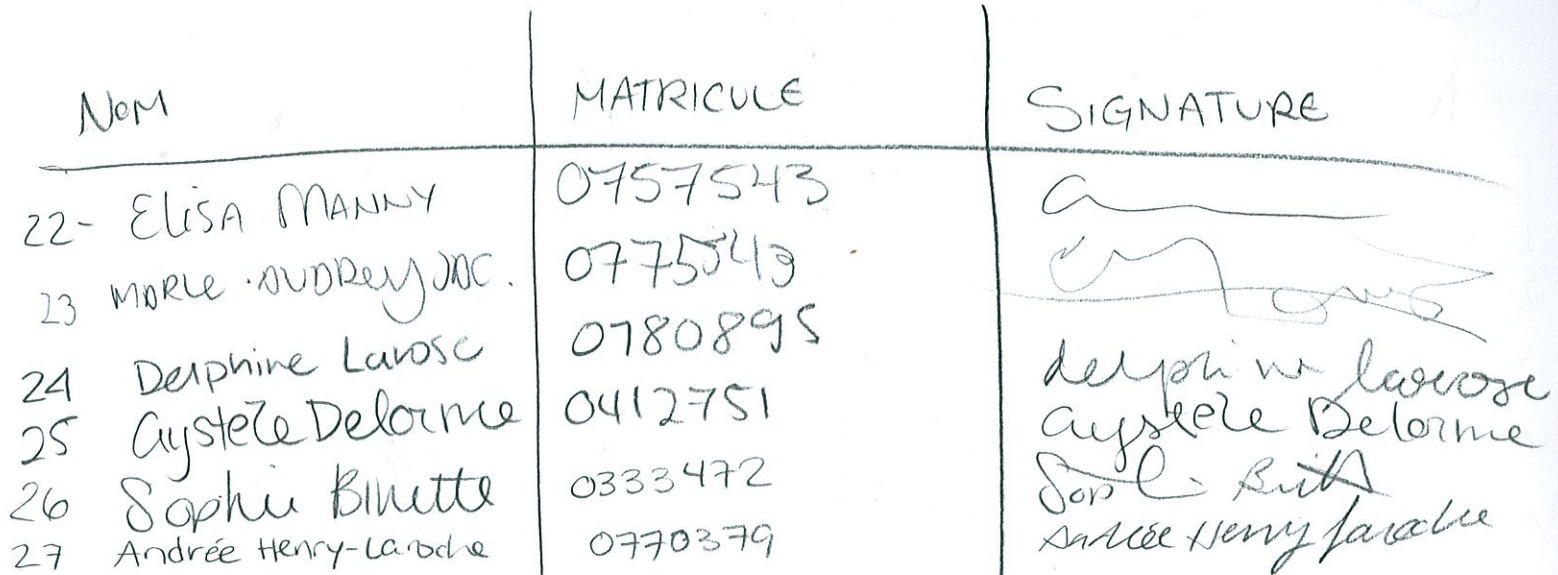 NOM MATRICULE SIGNATURE
22- ELISA MANNY 0757543
23 MARIE-AUDREY JAC. 0775543
24 Delphine Larose 0780895 delphine larose
25 Aystele Delorme 0412751 Aystele Delorme
26 Sophie Binette 0333472
27 Andrée Henry-Laroche 0770379 Andrée Henry Laroche